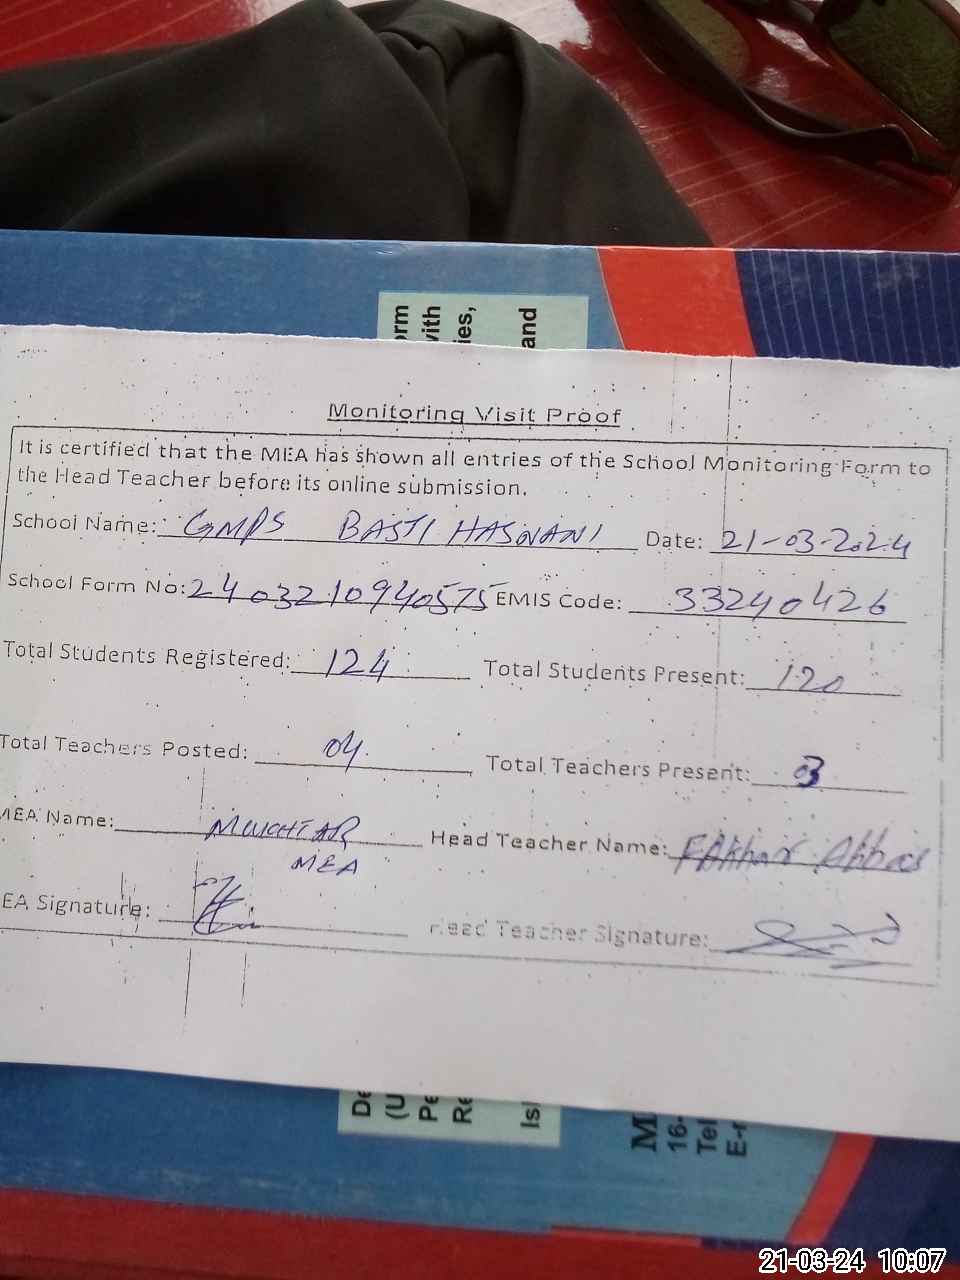 orm
vith
ies,
and
Monitoring Visit Proof
It is certified that the MEA has shown all entries of the School Monitoring Form to
the Head Teacher before its online submission.
School Name: GMPS BASTI HASNANI Date: 21-03-2024
School Form No: 240321094 0575 EMIS Code: 33240426
Total Students Registered: 124 Total Students Present: 120
Total Teachers Posted: 04 Total Teachers Present: 03
MEA Name: MUKHTAR Head Teacher Name: FAkhar Abbas
MEA
EA Signature: Head Teacher Signature:
De
(U
Pe
Re
Isl
M
16-
Tel
E-m
21-03-24 10:07